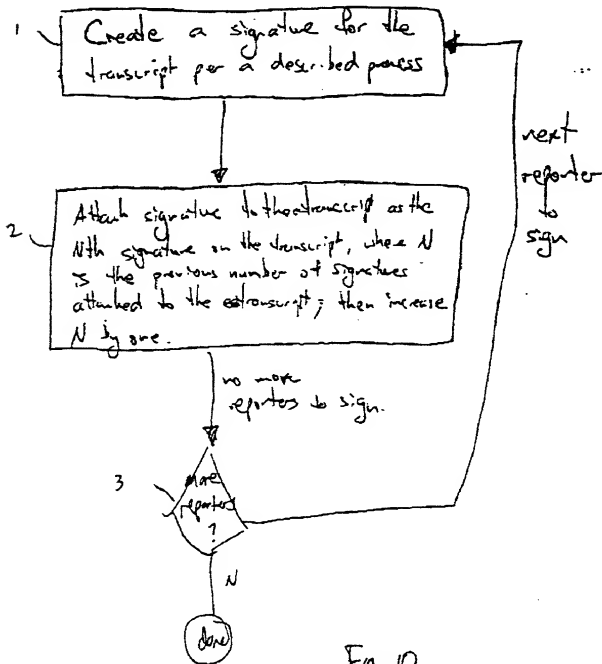 1
Create a signature for the
transcript per a described process
next
reporter
to
sign
2
Attach signature to the etranscript as the
Nth signature on the transcript, where N
is the previous number of signatures
attached to the etranscript; then increase
N by one.
no more
reporters to sign.
3
more
reporters
?
N
done
Fig. 10